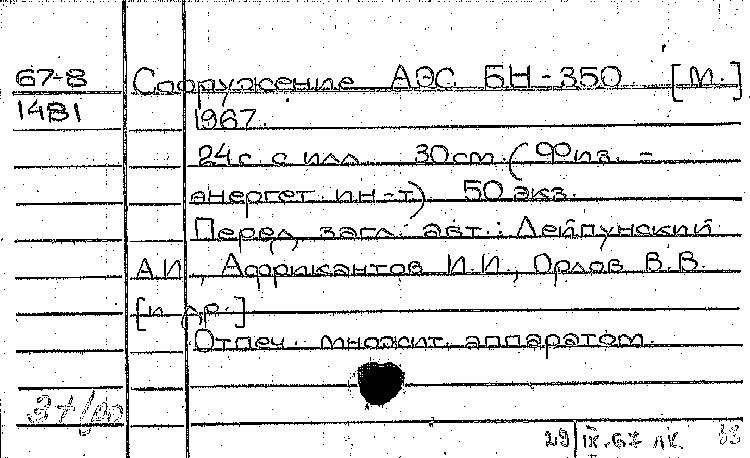 67-8 Сооружение АЭС БН-350. [М.]
1481 1967.
24 с. с илл. 30 см. (Физ. -
энергет. ин-т.) 50 экз.
Перед загл. авт.: Лейпунский
А.И., Африкантов И.И., Орлов В.В.
[и др.]
Отпеч. множит. аппаратом.
29/IX-67